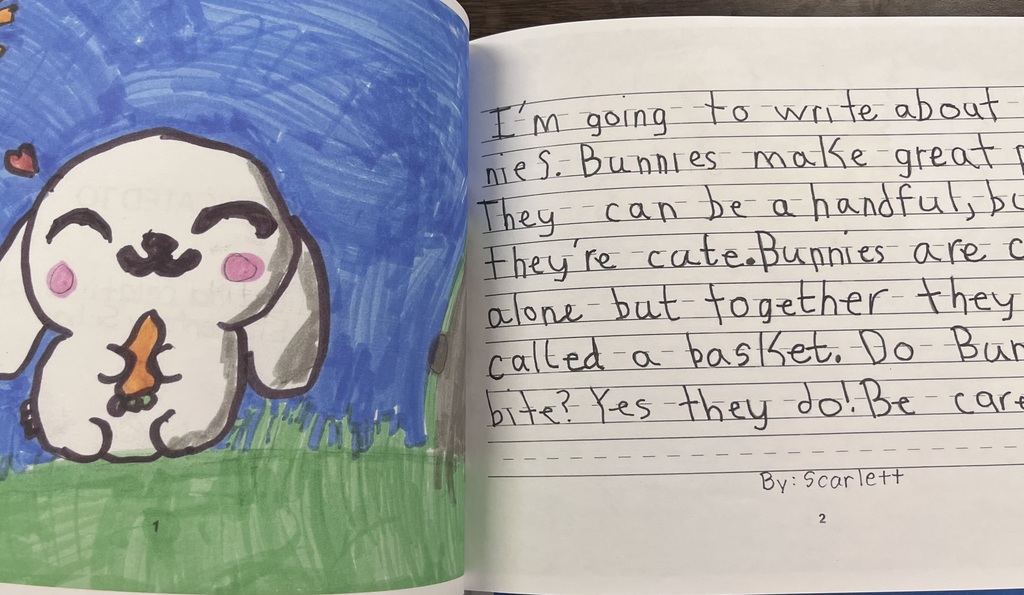 1
I'm going to write about
nies. Bunnies make great
They can be a handful,
they're cate. Bunnies are
alone but together they
called a basket. Do
bite? Yes they do! Be
By: Scarlett
2